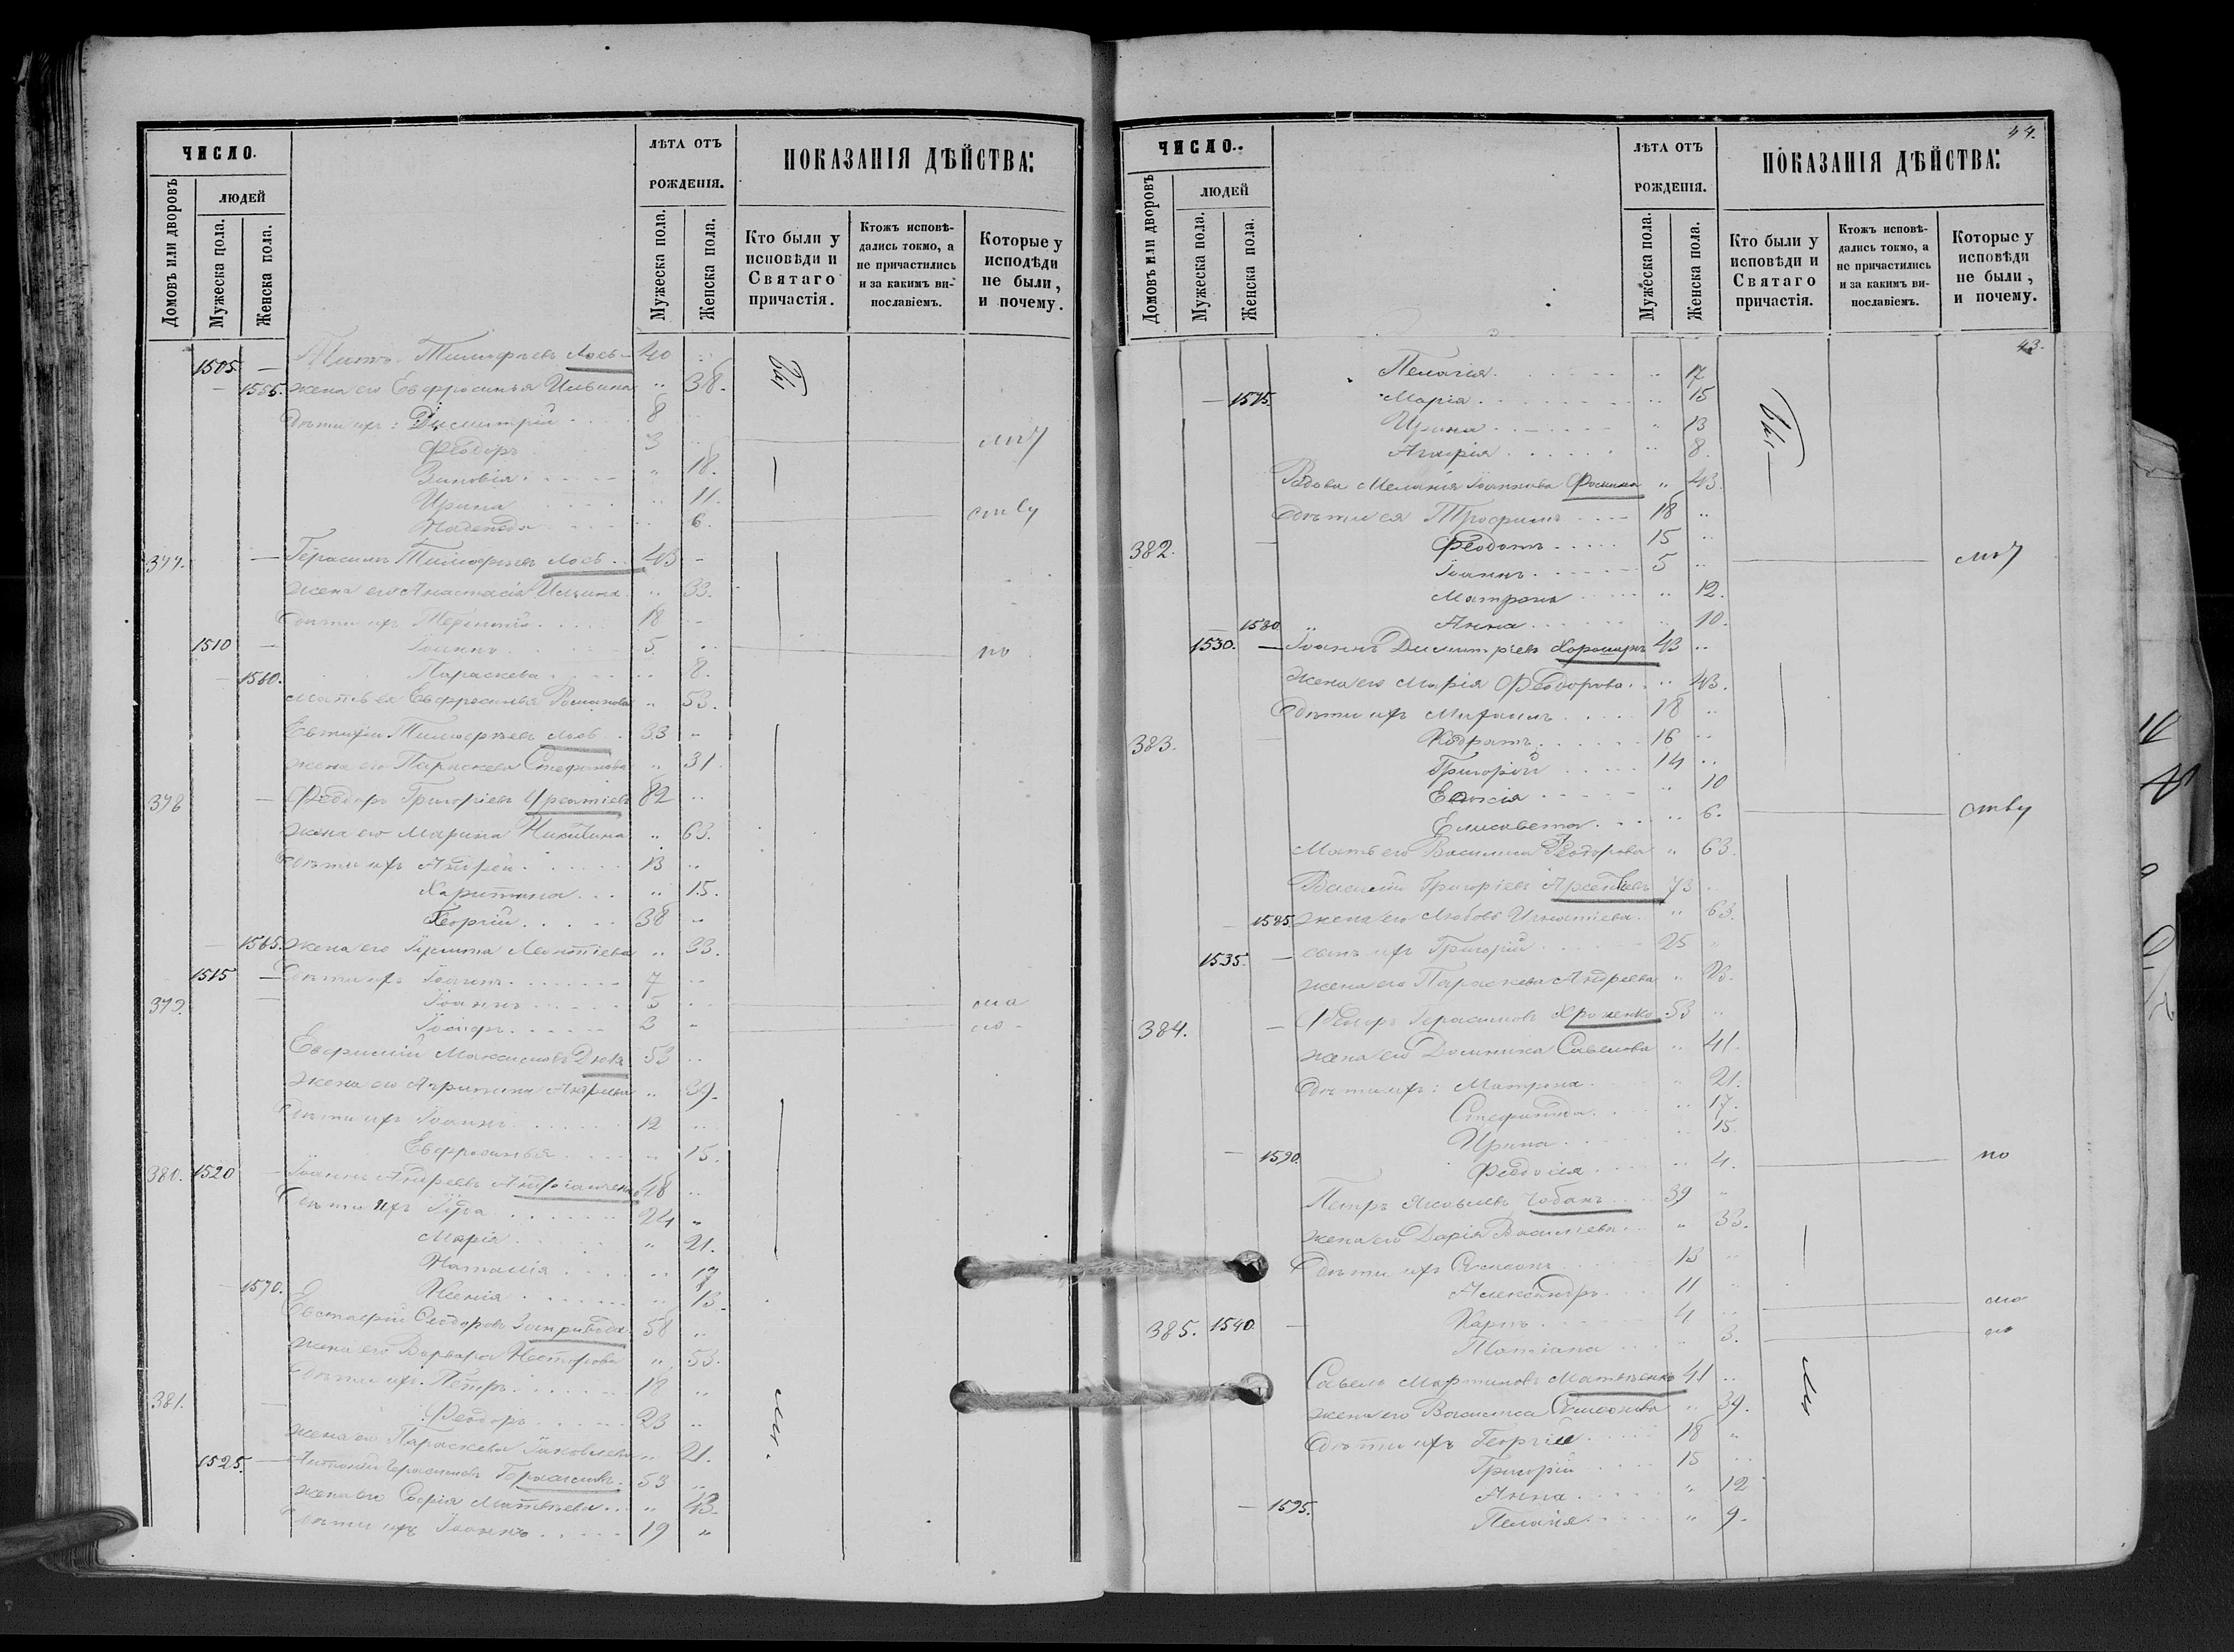 ЧИСЛО.
ЛѢТА ОТЪ РОЖДЕНІЯ.
ПОКАЗАНІЯ ДѢЙСТВА:
Домовъ или дворовъ
ЛЮДЕЙ
Мужеска пола.
Женска пола.
Мужеска пола.
Женска пола.
Кто были у исповѣди и Святаго причастія.
Ктожъ исповѣдались токмо, а не причастились и за какимъ винославіемъ.
Которые у исподѣди не были, и почему.
1505 — Тимофѣевъ Лось 40
жена его Евфросинья 38.
дѣти ихъ: Димитрій 8
Ѳеодоръ 3
Зиновія 18.
Ирина 11.
Надежда 6.
377. — Герасимъ Тимофѣевъ Лось 43
жена его Анастасія 33.
дѣти ихъ 18
1510 — Іоаннъ 5 по
1560. Параскева 8.
мать ея Евфросинья Романова 53.
Евтихій Тимофѣевъ Лось 33
жена его Параскева Стефанова 31.
378 — Ѳеодоръ Григоріевъ 82
жена его Марина 63.
дѣти ихъ Андрей 13
Харитина 15.
Георгій 38
1565. жена его Іулитта Леонтіева 33.
1515 — дѣти ихъ Іоаннъ 7
379. Іоаннъ 5
Іосифъ 3
Евфимій Максимовъ 53
жена его Агрипина Андреева 39.
дѣти ихъ Іоаннъ 12
Евфросинья 15.
380. 1520 Іоаннъ Андреевъ 48
дѣти ихъ Іуда 24
Марія 21.
Наталія 17
1570. Ксенія 13.
Евстафій Ѳеодоровъ 58
жена его Варвара Несторова 53.
дѣти ихъ Петръ 18
381. Ѳеодоръ 23
жена его Параскева Іаковлева 21.
1525. — Антоній Герасимовъ 53
жена его Софія Матвѣева 43.
дѣти ихъ Іоаннъ 19
44.
ЧИСЛО..
ЛѢТА ОТЪ РОЖДЕНІЯ.
ПОКАЗАНІЯ ДѢЙСТВА:
Домовъ или дворовъ
ЛЮДЕЙ
Мужеска пола.
Женска пола.
Мужеска пола.
Женска пола.
Кто были у исповѣди и Святаго причастія.
Ктожъ исповѣдались токмо, а не причастились и за какимъ винославіемъ.
Которыс у исповѣди не были, и почему.
43.
Пелагія 17
1575. Марія 15
Ирина 13
8.
Вдова Меланія Іоаннова Ѳомина 43.
дѣти ея Трофимъ 18
382. Ѳеодотъ 15
Іоаннъ 5
Матрона 12.
1580 Анна 10.
1530. — Іоаннъ Димитріевъ 43
жена его Марія Ѳеодорова 43.
дѣти ихъ Михаилъ 18
383. Кодратъ 16
Григорій 14
10
Елисавета 6.
Мать его Василиса Ѳеодорова 63.
Василій Григоріевъ Арсеньевъ 73
1585. жена его Любовь Игнатіева 63.
1535. — сынъ ихъ Григорій 25
жена его Параскева Андреева 23.
384. — Герасимовъ 53
жена его Домника Савелова 41.
дѣти ихъ: Матрона 21.
Стефанида 17.
Ирина 15.
1590. Ѳеодосія 4. по
Петръ Яковлевъ Чобанъ 39
жена его Дарія Васильева 33.
дѣти ихъ Симеонъ 13
Александръ 11
385. 1540. Карпъ 4
Татіана 3.
Савелъ Мартиновъ Матвѣенко 41
жена его Василиса Симеонова 39.
дѣти ихъ Георгій 18
Григорій 15
Анна 12
1595. Пелагія 9.